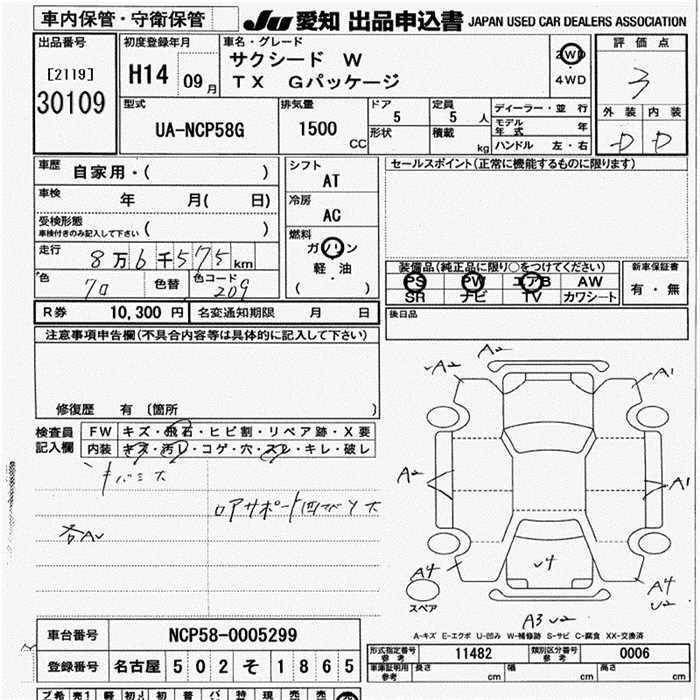 車内保管・守衛保管
JU 愛知 出品申込書 JAPAN USED CAR DEALERS ASSOCIATION
出品番号
[2119]
30109
初度登録年月
H14 09月
車名・グレード
サクシード W
TX Gパッケージ
2WD
4WD
評価点
3
外装 内装
D D
型式
UA-NCP58G
排気量
1500
CC
ドア
5
定員
5人
形状
積載
kg
ディーラー・並行
モデル年式 年
ハンドル 左・右
車歴
自家用・( )
車検
年 月( 日)
受検形態
車検付きのみ記入して下さい ( )
走行
8万6千575km
色
色替
色コード
209
シフト
AT
冷房
AC
燃料
ガソリン
軽・油
( )
セールスポイント(正常に機能するものに限ります)
装備品(純正品に限り○をつけてください)
PS PW エアB AW
SR ナビ TV カワシート
新車保証書
有・無
R券 10,300円
名変通知期限 月 日
後日品
注意事項申告欄(不具合内容等は具体的に記入して下さい)
修復歴 有 〔箇所 〕
検査員記入欄
FW キズ・飛石・ヒビ割・リペア跡・X要
内装 キズ・汚レ・コゲ・穴・スレ・キレ・破レ
ロアサポート凹サビ大
A2
A2
A1
A2
A1
A4
U4
A4
U2
スペア
A3 U2
A-キズ E-エクボ U-凹み W-補修跡 S-サビ C-腐食 XX-交換済
車台番号 NCP58-0005299
登録番号 名古屋 502 そ 1865
形式指定番号
参考
11482
類別区分番号
参考
0006
車庫証明用
参考
長さ cm 幅 cm 高さ cm